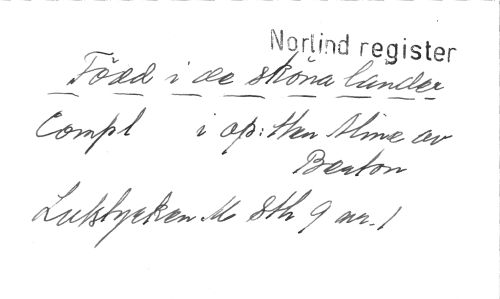 Norlind register
Född i de sköna länder
Compl i op: tten Aline av
Berton
Lutstycken M Sth 9 nr. 1